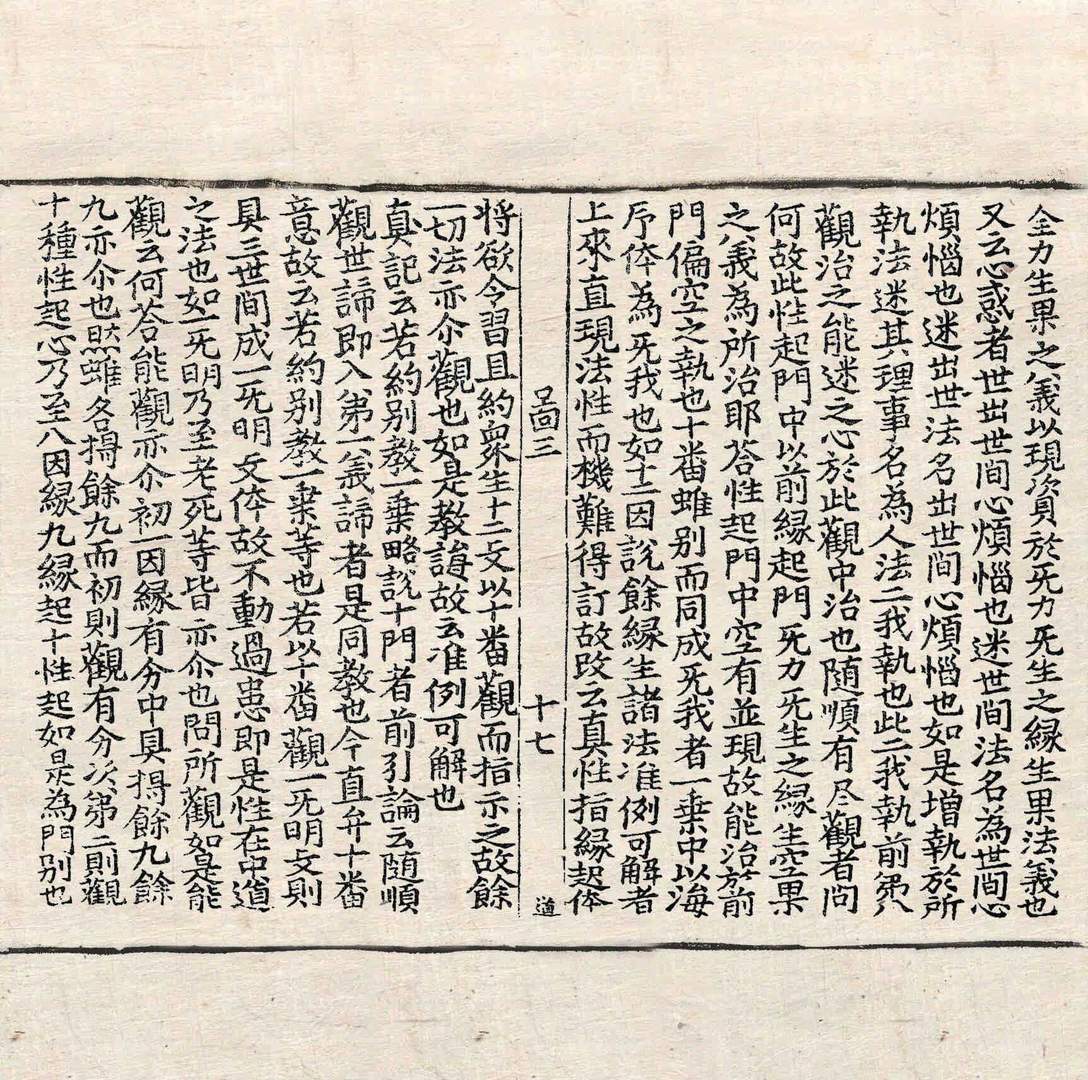 全力生果之義以現資於旡力旡生之縁生果法義也
又云心惑者世出世間心煩惱也迷世間法名為世間心
煩惱也迷出世法名出世間心煩惱也如是增執於所
執法迷其理事名為人法二我執也此二我執前第八
觀治之能迷之心於此觀中治也随順有尽觀者問
何故此性起門中以前縁起門旡力旡生之縁生空果
之義為所治耶荅性起門中空有並現故能治於前
門偏空之執也十番雖别而同成旡我者一乗中以海
印体為旡我也如十二因説餘縁生諸法准例可解者
上來直現法性而機難得訂故改云真性指縁起体
啚三 十七 道
将欲令習且約衆生十二支以十番觀而指示之故餘
一切法亦尒觀也如是教誨故云准例可解也
真記云若約别教一乗略說十門者前引論云随順
觀世諦即入第一義諦者是同教也今直弁十番
意故云若約别教一乗等也若以十番觀一旡明支則
具三世間成一旡明支体故不動過患即是性在中道
之法也如一旡明乃至老死等皆亦尒也問所觀如是能
觀云何荅能觀亦尒初一因縁有分中具得餘九餘
九亦尒也然雖各得餘九而初則觀有分次第二則觀
十種性起心乃至八因縁九縁起十性起如是為門别也